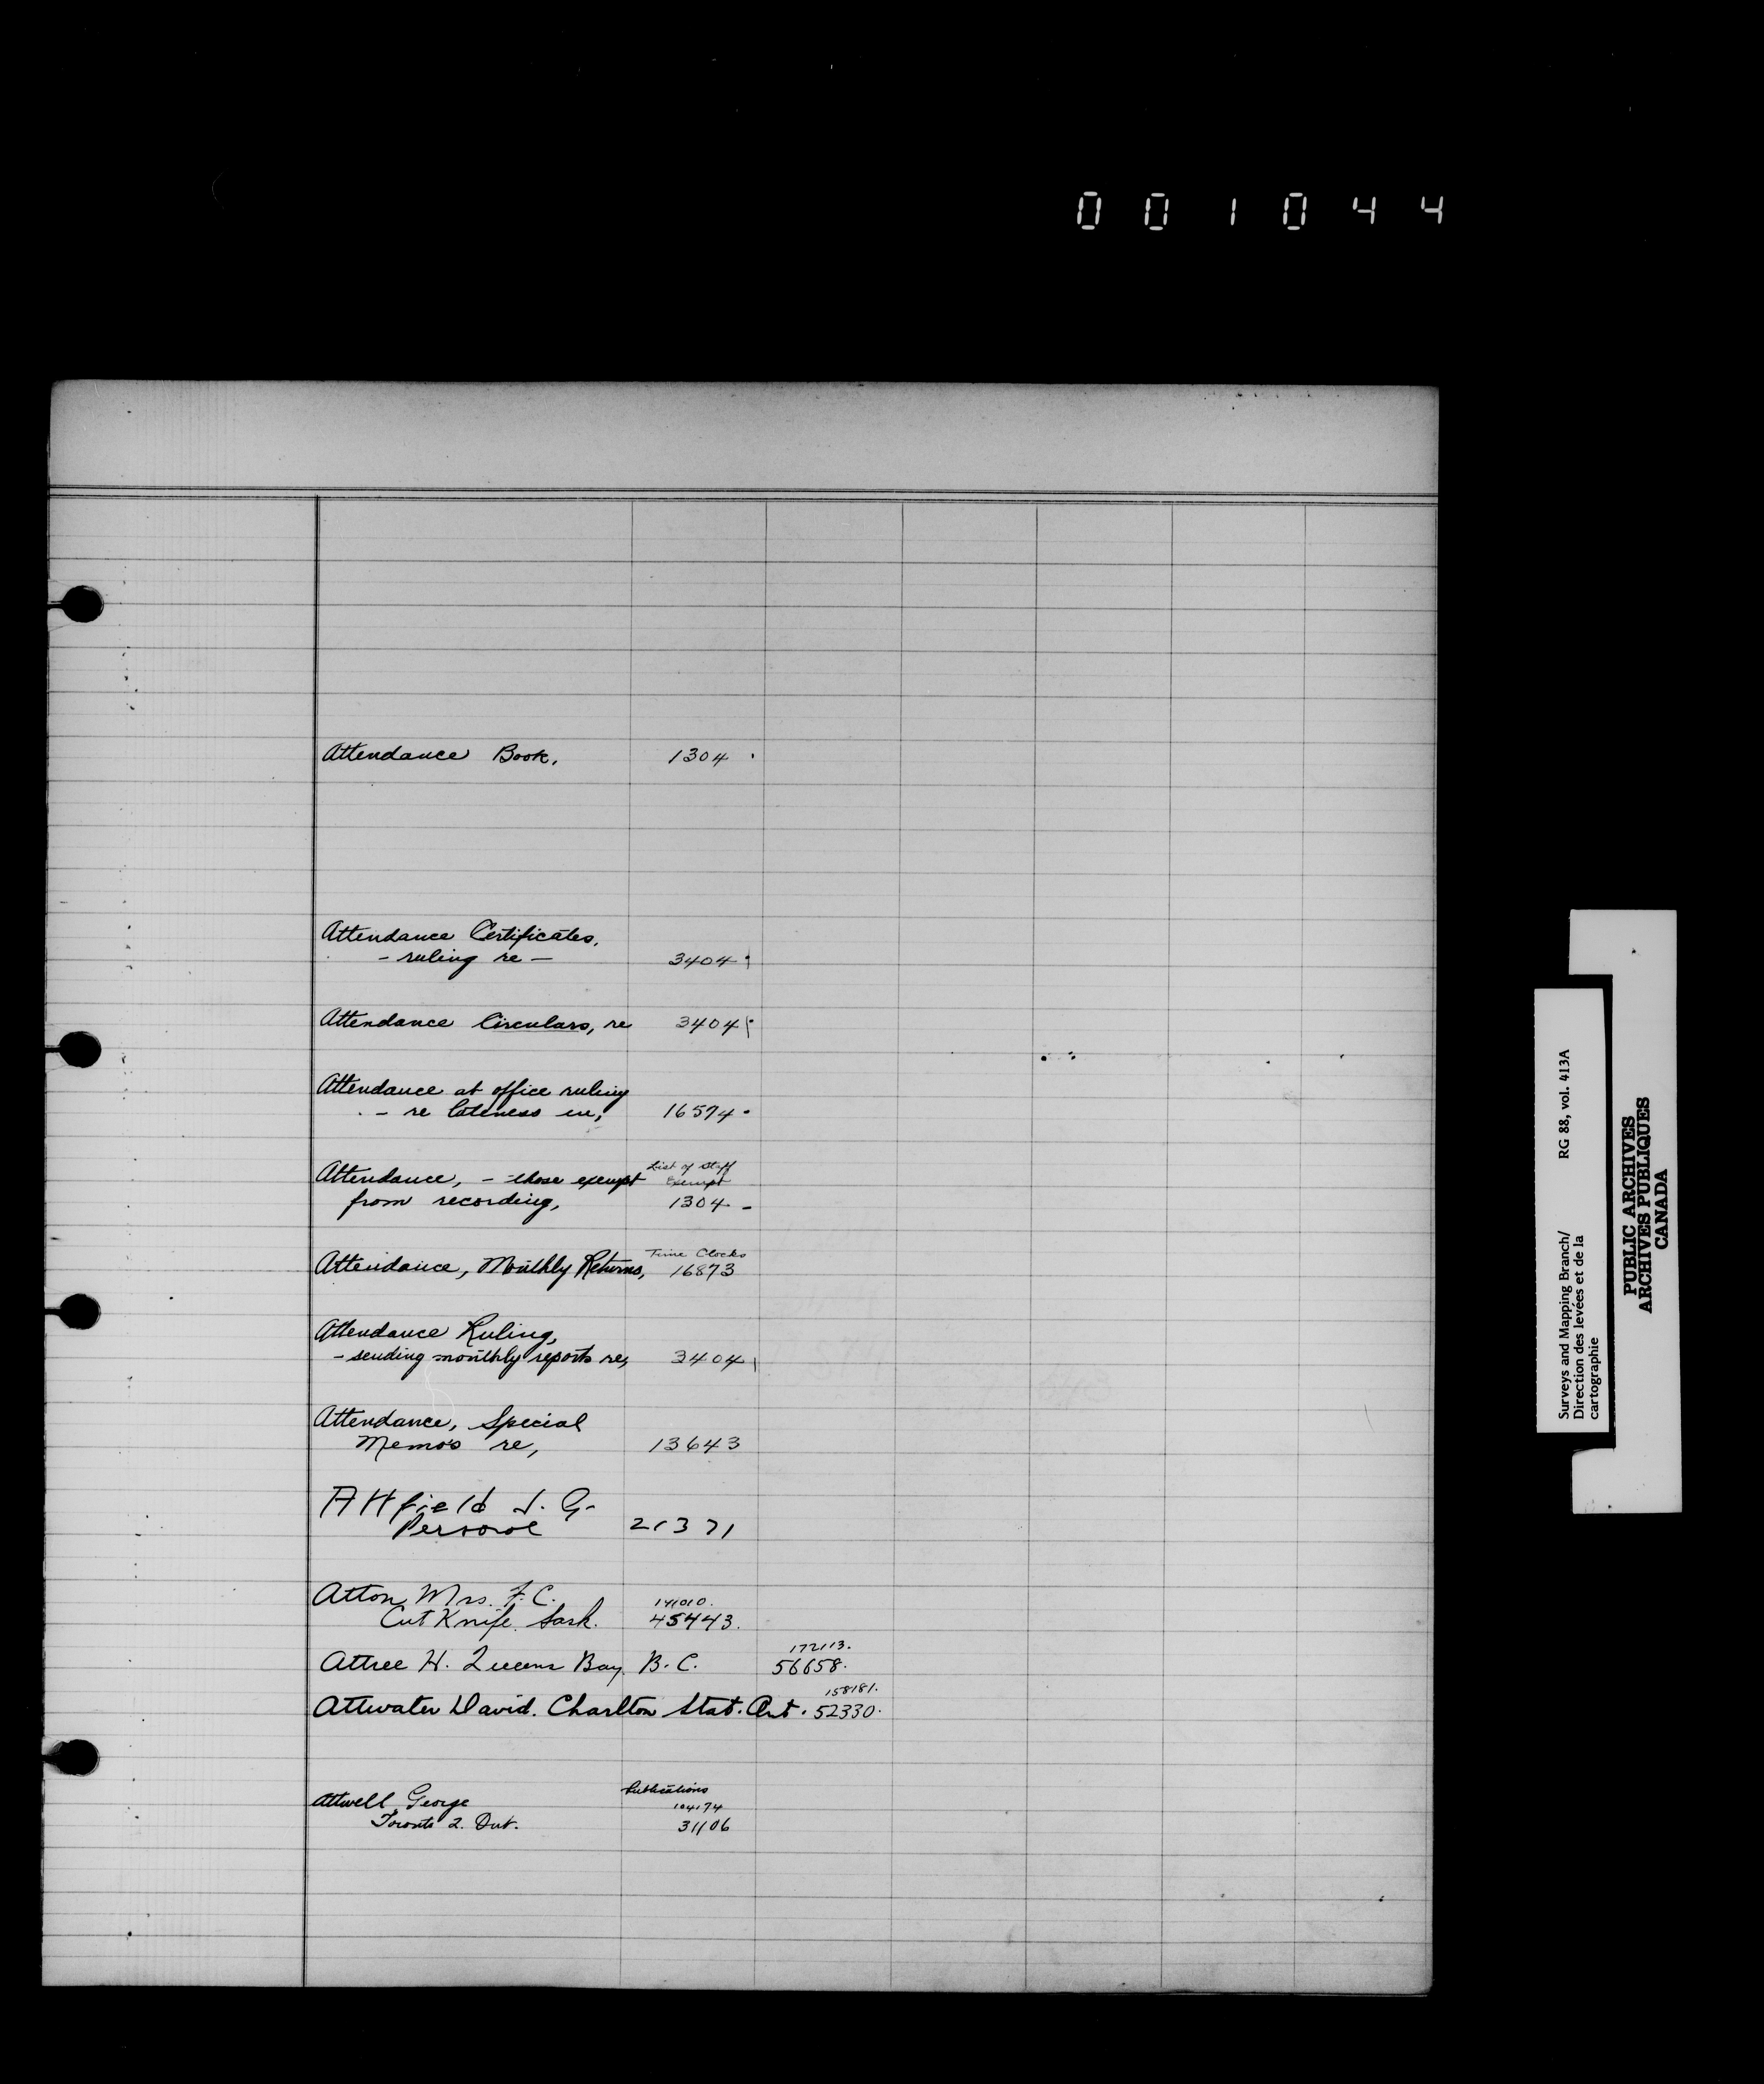 001044
Attendance Book. 1304
Attendance Certificates.
- ruling re - 3404
Attendance Circulars, re 3404
Attendance at office ruling
- re lateness in, 16574
Attendance, - those exempt List of Staff Exempt
from recording, 1304 -
Time Clocks
Attendance, Monthly Returns, 16873
Attendance Ruling,
- sending monthly reports re, 3404
Attendance, Special
Memos re, 13643
Attfield J. G.
Personal 21371
Atton Mrs. F. C. 141010.
Cut Knife. Sask. 45443.
172113.
Attree H. Queens Bay. B. C. 56658.
158181.
Attwater David. Charlton Stat. Ont. 52330.
Publications
Attwell, George 104174
Toronto 2. Ont. 31106
Surveys and Mapping Branch/ RG 88, vol. 413A
Direction des levées et de la
cartographie
PUBLIC ARCHIVES
ARCHIVES PUBLIQUES
CANADA